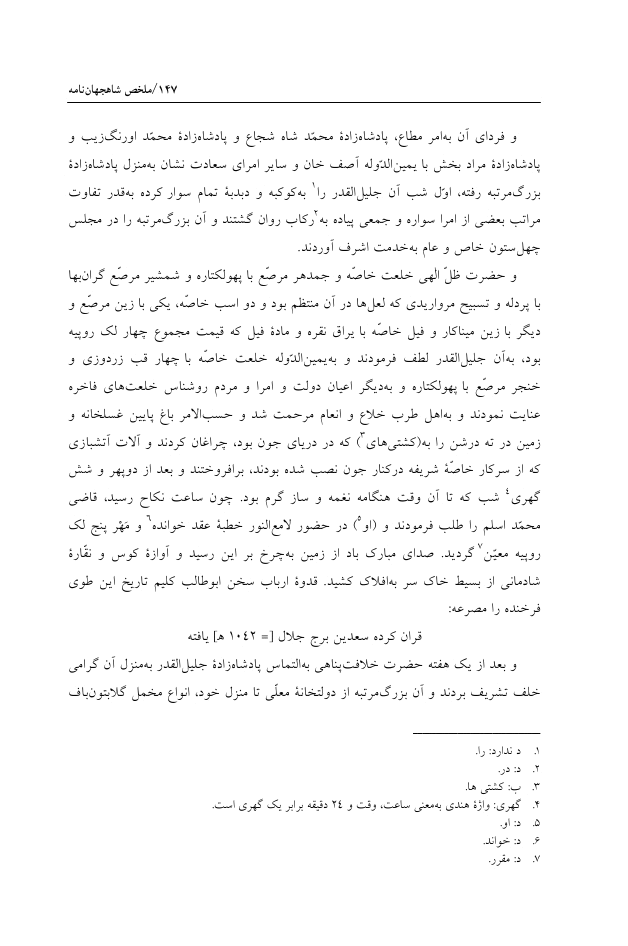 ۱۴۷/ملخص شاهجهان‌نامه
و فردای آن به‌امر مطاع، پادشاه‌زادهٔ محمّد شاه شجاع و پادشاه‌زادهٔ محمّد اورنگ‌زیب و
پادشاه‌زادهٔ مراد بخش با یمین‌الدّوله آصف خان و سایر امرای سعادت نشان به‌منزل پادشاه‌زادهٔ
بزرگ‌مرتبه رفته، اوّل شب آن جلیل‌القدر را۱ به‌کوکبه و دبدبهٔ تمام سوار کرده به‌قدر تفاوت
مراتب بعضی از امرا سواره و جمعی پیاده به۲رکاب روان گشتند و آن بزرگ‌مرتبه را در مجلس
چهل‌ستون خاص و عام به‌خدمت اشرف آوردند.
و حضرت ظلّ الٰهی خلعت خاصّه و جمدهر مرصّع با پهولکتاره و شمشیر مرصّع گران‌بها
با پردله و تسبیح مرواریدی که لعل‌ها در آن منتظم بود و دو اسب خاصّه، یکی با زین مرصّع و
دیگر با زین میناکار و فیل خاصّه با یراق نقره و مادهٔ فیل که قیمت مجموع چهار لک روپیه
بود، به‌آن جلیل‌القدر لطف فرمودند و به‌یمین‌الدّوله خلعت خاصّه با چهار قب زردوزی و
خنجر مرصّع با پهولکتاره و به‌دیگر اعیان دولت و امرا و مردم روشناس خلعت‌های فاخره
عنایت نمودند و به‌اهل طرب خلاع و انعام مرحمت شد و حسب‌الامر باغ پایین غسلخانه و
زمین در ته درشن را به(کشتی‌های۳) که در دریای جون بود، چراغان کردند و آلات آتشبازی
که از سرکار خاصّهٔ شریفه درکنار جون نصب شده بودند، برافروختند و بعد از دوپهر و شش
گهری۴ شب که تا آن وقت هنگامه نغمه و ساز گرم بود. چون ساعت نکاح رسید، قاضی
محمّد اسلم را طلب فرمودند و (او۵) در حضور لامع‌النور خطبهٔ عقد خوانده۶ و مَهْر پنج لک
روپیه معیّن۷ گردید. صدای مبارک باد از زمین به‌چرخ بر این رسید و آوازهٔ کوس و نقّارهٔ
شادمانی از بسیط خاک سر به‌افلاک کشید. قدوهٔ ارباب سخن ابوطالب کلیم تاریخ این طوی
فرخنده را مصرعه:
قران کرده سعدین برج جلال [= ۱۰۴۲ هـ] یافته
و بعد از یک هفته حضرت خلافت‌پناهی به‌التماس پادشاه‌زادهٔ جلیل‌القدر به‌منزل آن گرامی
خلف تشریف بردند و آن بزرگ‌مرتبه از دولتخانهٔ معلّی تا منزل خود، انواع مخمل گلابتون‌باف
۱. د ندارد: را.
۲. د: در.
۳. ب: کشتی ها.
۴. گهری: واژهٔ هندی به‌معنی ساعت، وقت و ۲۴ دقیقه برابر یک گهری است.
۵. د: او.
۶. د: خواند.
۷. د: مقرر.